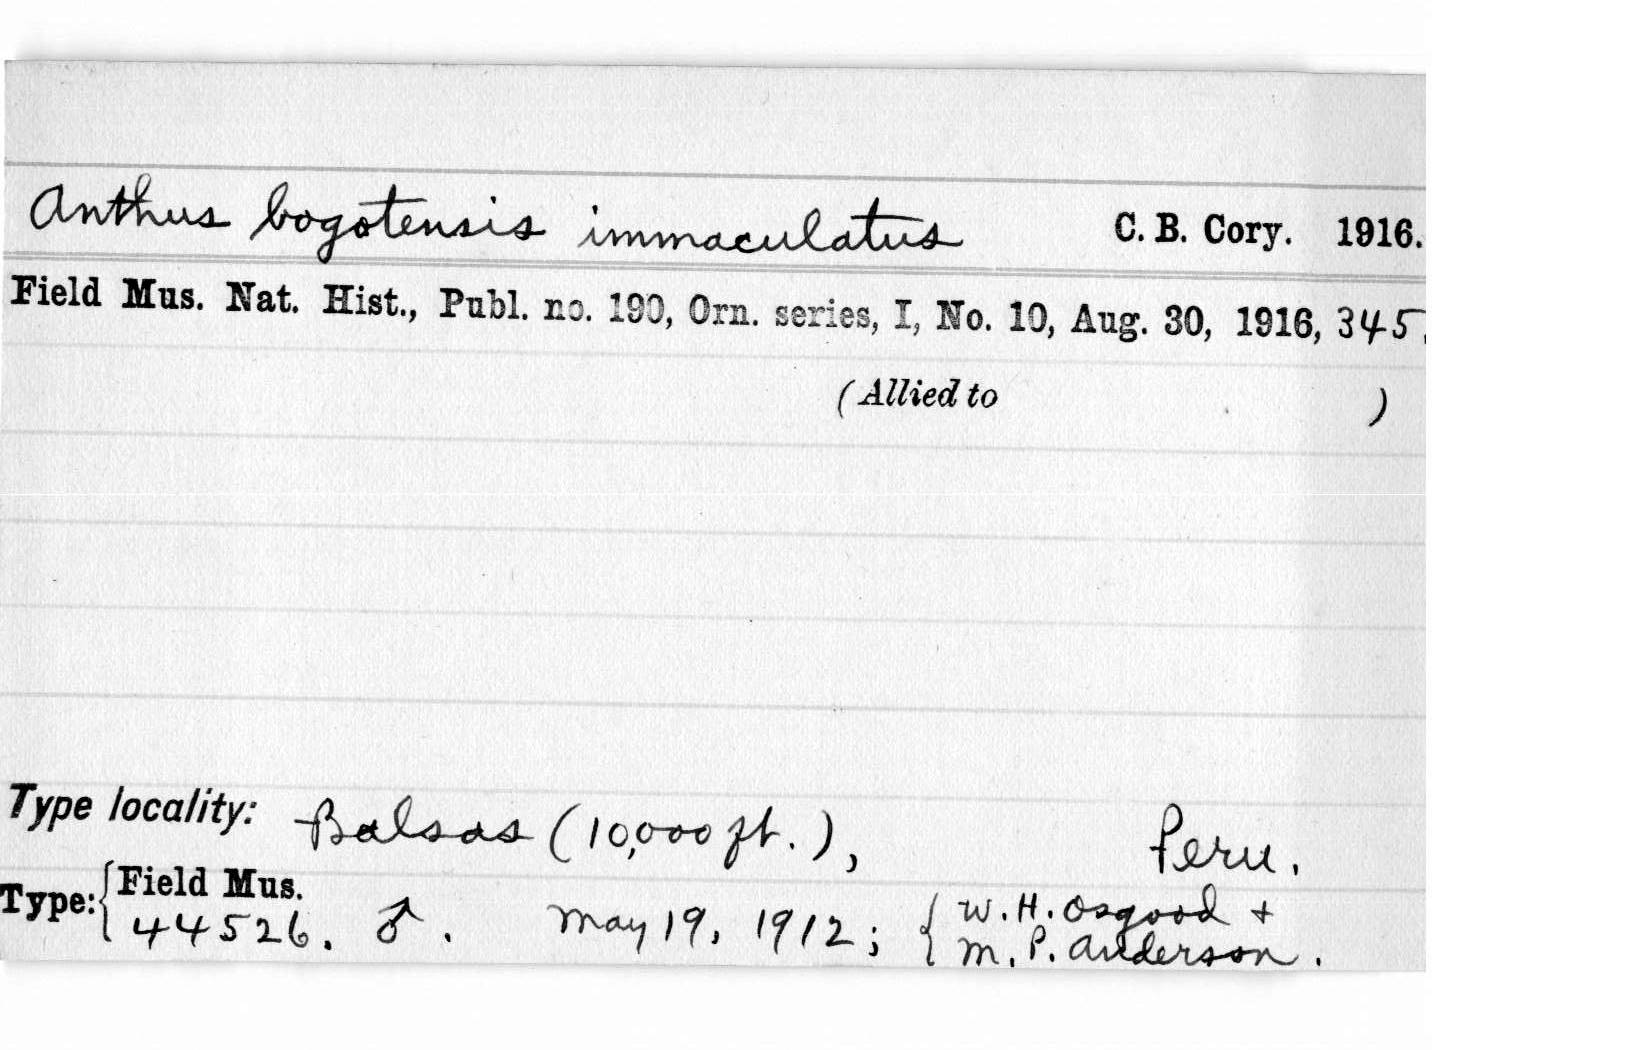 Anthus bogotensis immaculatus C. B. Cory. 1916.
Field Mus. Nat. Hist., Publ. no. 190, Orn. series, I, No. 10, Aug. 30, 1916, 345.
(Allied to )
Type locality: Balsas (10,000 ft.), Peru.
Type: { Field Mus.
44526. ♂. May 19, 1912; { W. H. Osgood +
M. P. Anderson.